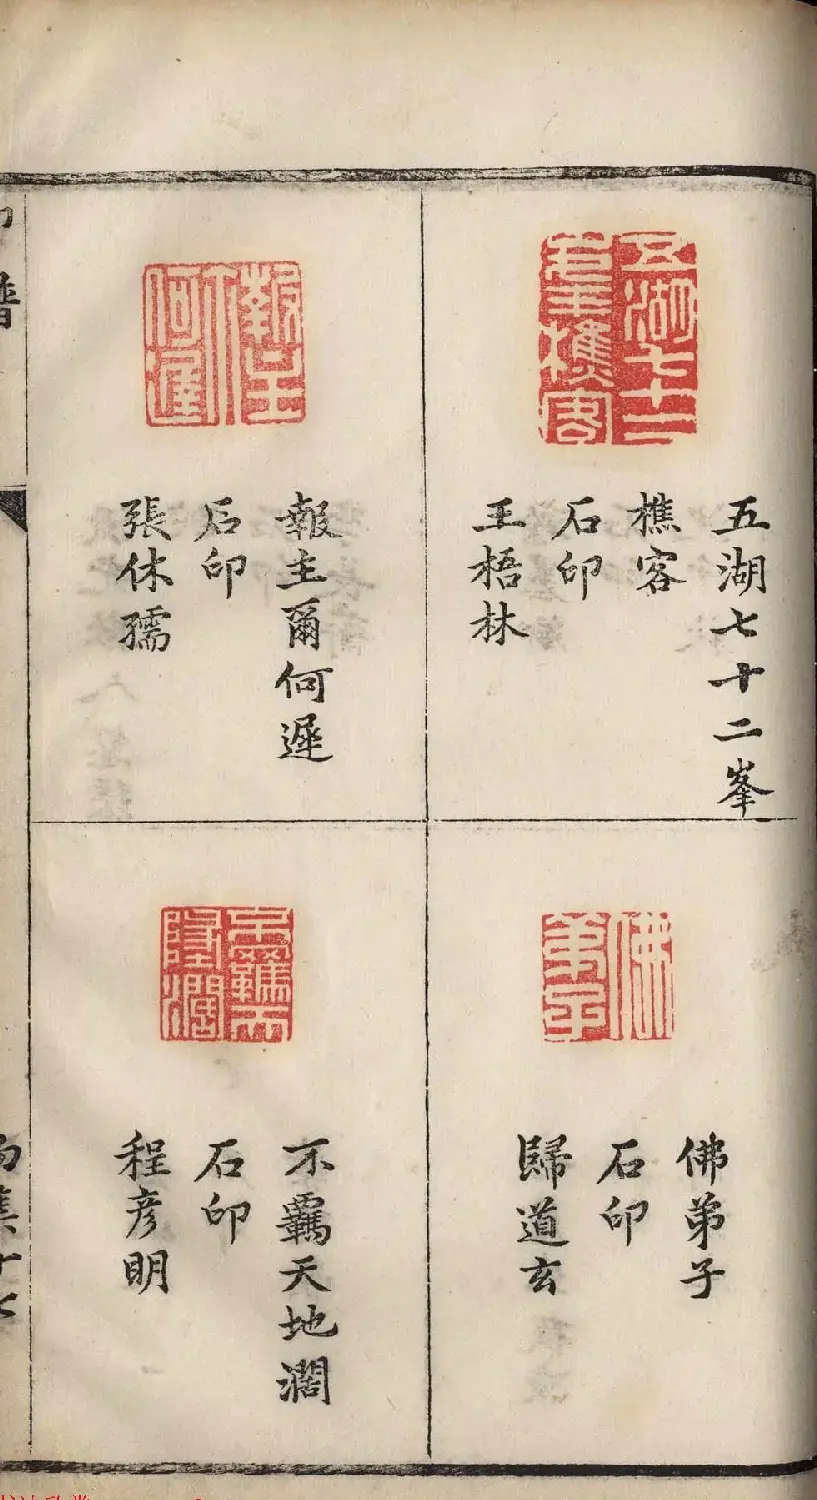 五湖七十二峯
樵客
石印
王梧林
佛弟子
石印
歸道玄
報主爾何遲
石印
張休孺
不羈天地濶
石印
程彦明